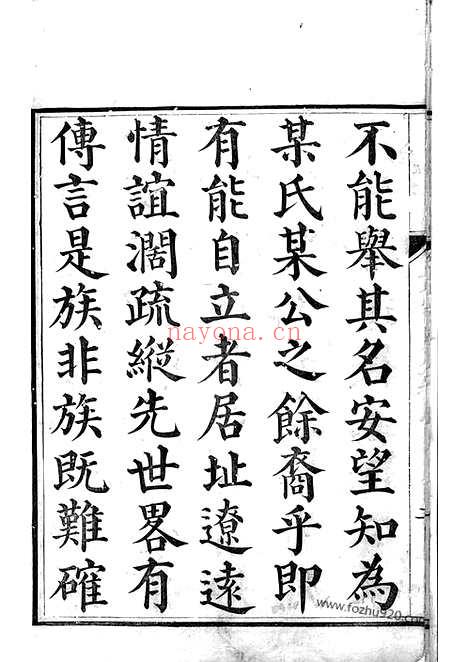 不能舉其名安望知為
某氏某公之餘裔乎即
有能自立者居址遼遠
情誼濶疏縱先世畧有
傳言是族非族既難確
nayona.cn
www.fozhu920.com